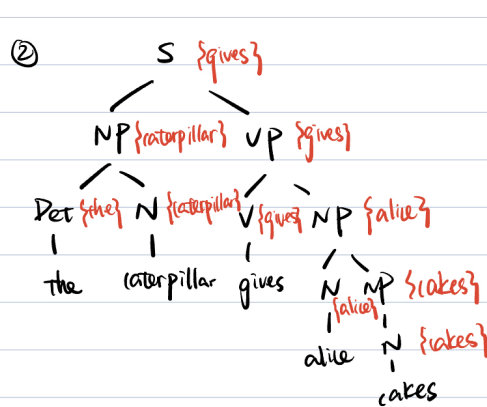 ②
S {gives}
NP {caterpillar} VP {gives}
Det {the} N {caterpillar} V {gives} NP {alice}
the caterpillar gives N {alice} NP {cakes}
alice N {cakes}
cakes